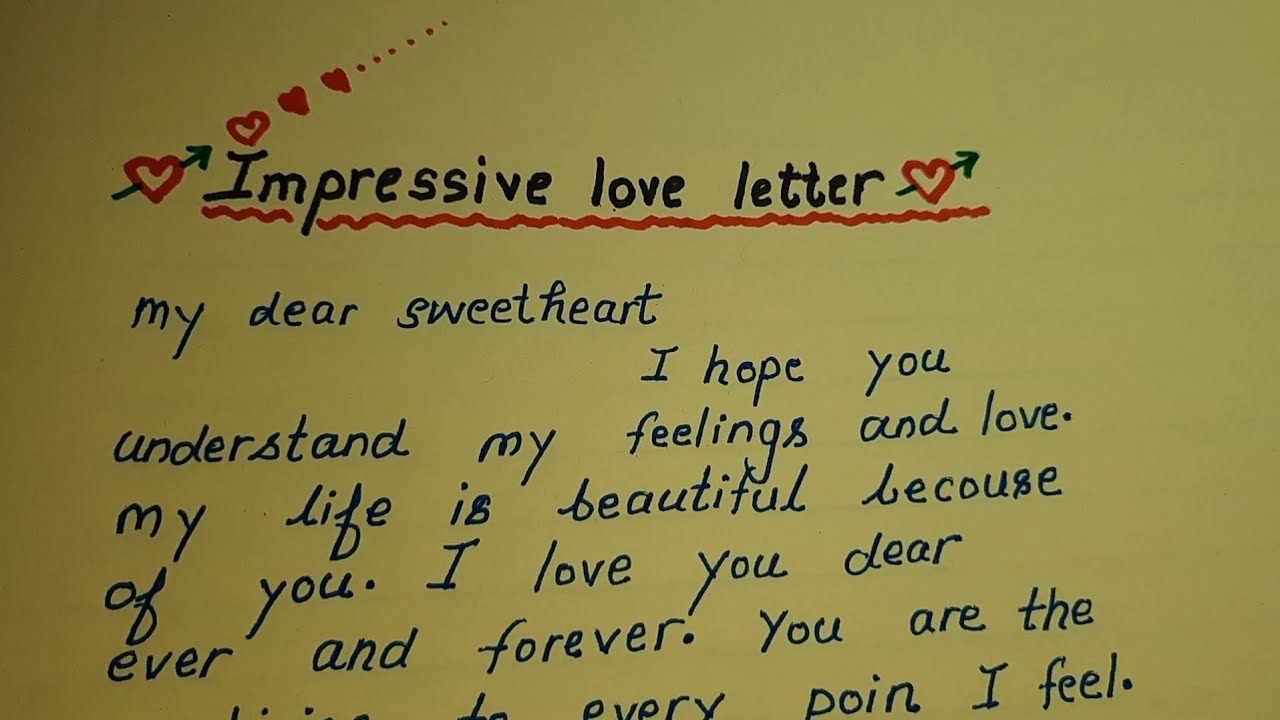 Impressive love letter
my dear sweetheart
I hope you
understand my feelings and love.
my life is beautiful becouse
of you. I love you dear
ever and forever. You are the
to every poin I feel.